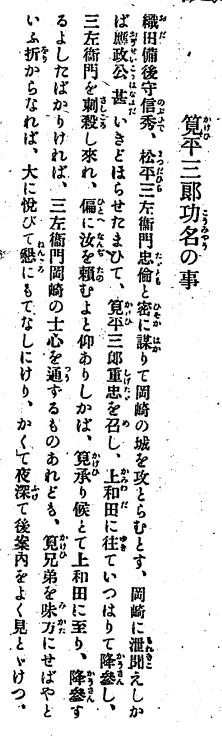 筧平三郎功名の事
織田備後守信秀、松平三左衞門忠倫と密に謀りて岡崎の城を攻とらむとす、岡崎に泄聞えしか
ば應政公甚いきどほらせたまひて、筧平三郎重忠を召し、上和田に往ていつはりて降參し、
三左衞門を刺殺し來れ、偏に汝を頼むよと仰ありしかば、筧承り候とて上和田に至り、降參す
るよしたばかりければ、三左衞門岡崎の士心を通するものあれども、筧兄弟を味方にせばやと
いふ折からなれば、大に悅びて懇にもてなしにけり、かくて夜深て後案內をよく見とゞけつ、